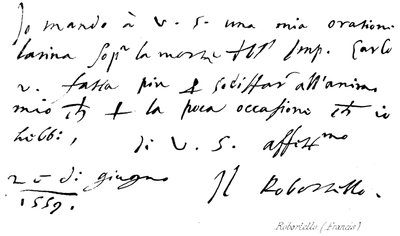 Io mando à V. S. una mia oratione
latina sopra la morte dell' Imp. Carlo
V. fatta più per sodisfar all'animo
mio che per la poca occasione ch' io
hebbi,
di V. S. affett^mo
25 di giugno Il Robortello.
1559.
Robortello (Francis)